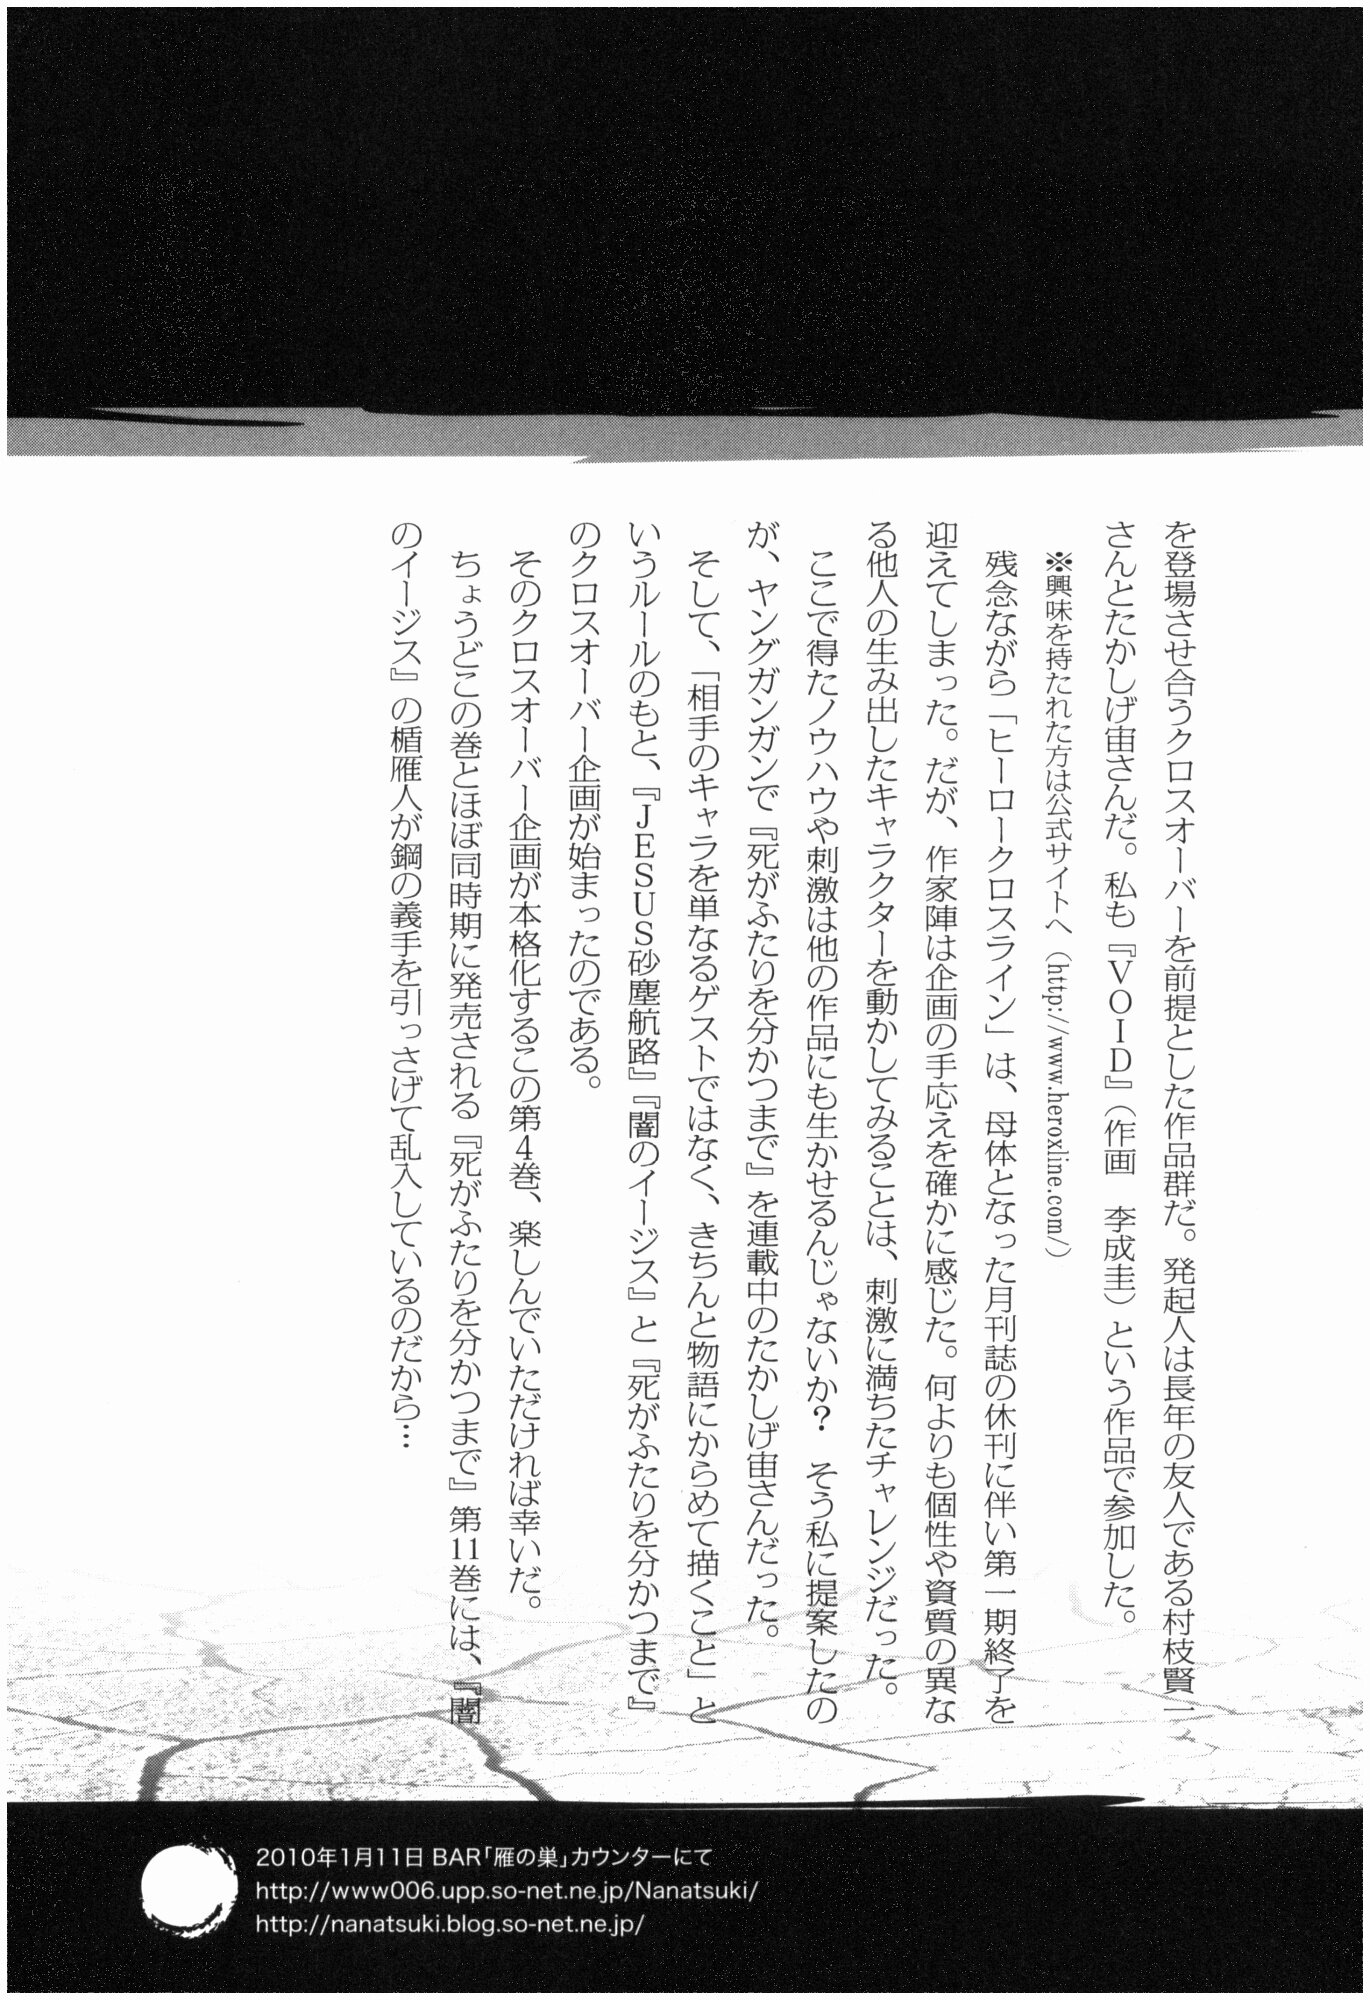 を登場させ合うクロスオーバーを前提とした作品群だ。発起人は長年の友人である村枝賢一
さんとたかしげ宙さんだ。私も『ＶＯＩＤ』（作画　李成圭）という作品で参加した。
※興味を持たれた方は公式サイトへ（http://www.heroxline.com/）
残念ながら「ヒーロークロスライン」は、母体となった月刊誌の休刊に伴い第一期終了を
迎えてしまった。だが、作家陣は企画の手応えを確かに感じた。何よりも個性や資質の異な
る他人の生み出したキャラクターを動かしてみることは、刺激に満ちたチャレンジだった。
ここで得たノウハウや刺激は他の作品にも生かせるんじゃないか？　そう私に提案したの
が、ヤングガンガンで『死がふたりを分かつまで』を連載中のたかしげ宙さんだった。
そして、「相手のキャラを単なるゲストではなく、きちんと物語にからめて描くこと」と
いうルールのもと、『ＪＥＳＵＳ砂塵航路』『闇のイージス』と『死がふたりを分かつまで』
のクロスオーバー企画が始まったのである。
そのクロスオーバー企画が本格化するこの第４巻、楽しんでいただければ幸いだ。
ちょうどこの巻とほぼ同時期に発売される『死がふたりを分かつまで』第11巻には、『闇
のイージス』の楯雁人が鋼の義手を引っさげて乱入しているのだから…
2010年1月11日 BAR「雁の巣」カウンターにて
http://www006.upp.so-net.ne.jp/Nanatsuki/
http://nanatsuki.blog.so-net.ne.jp/